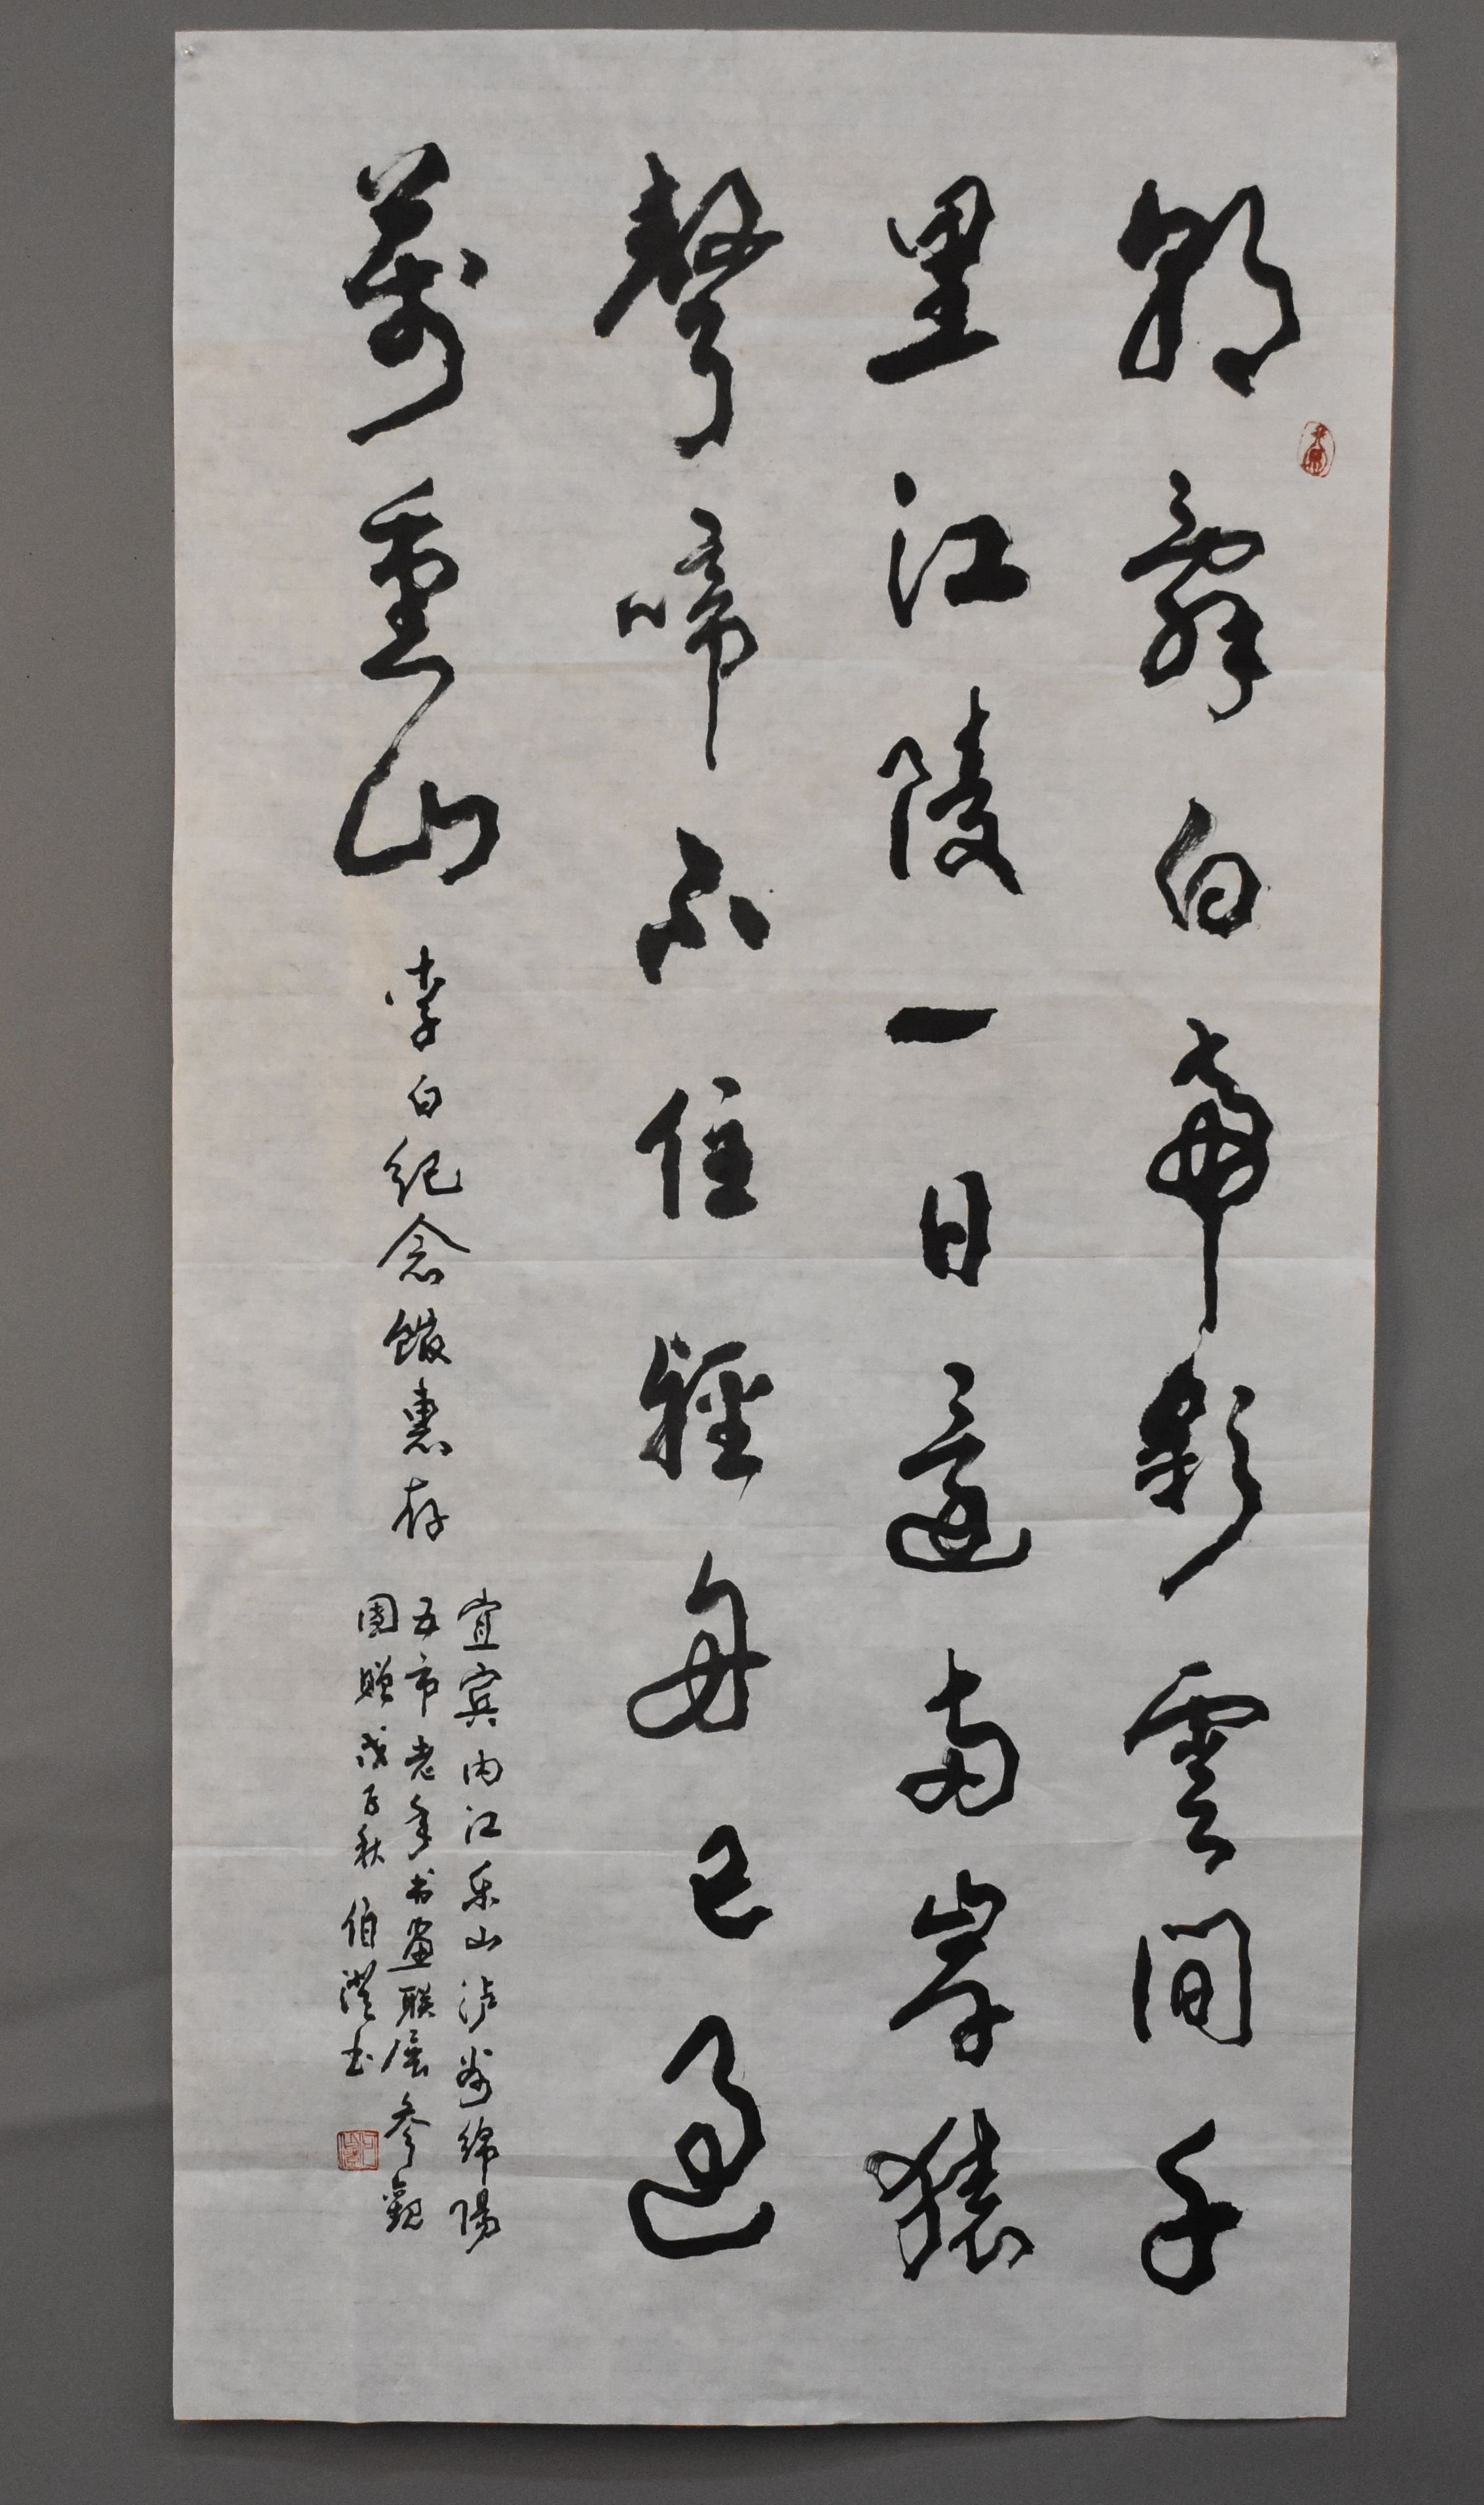 朝辭白帝彩雲間千
里江陵一日還兩岸猿
聲啼不住輕舟已過
萬重山
李白纪念馆惠存
宜宾内江乐山泸州绵陽
五市老年书画联展参觀
團赠戊子秋 伯澄书